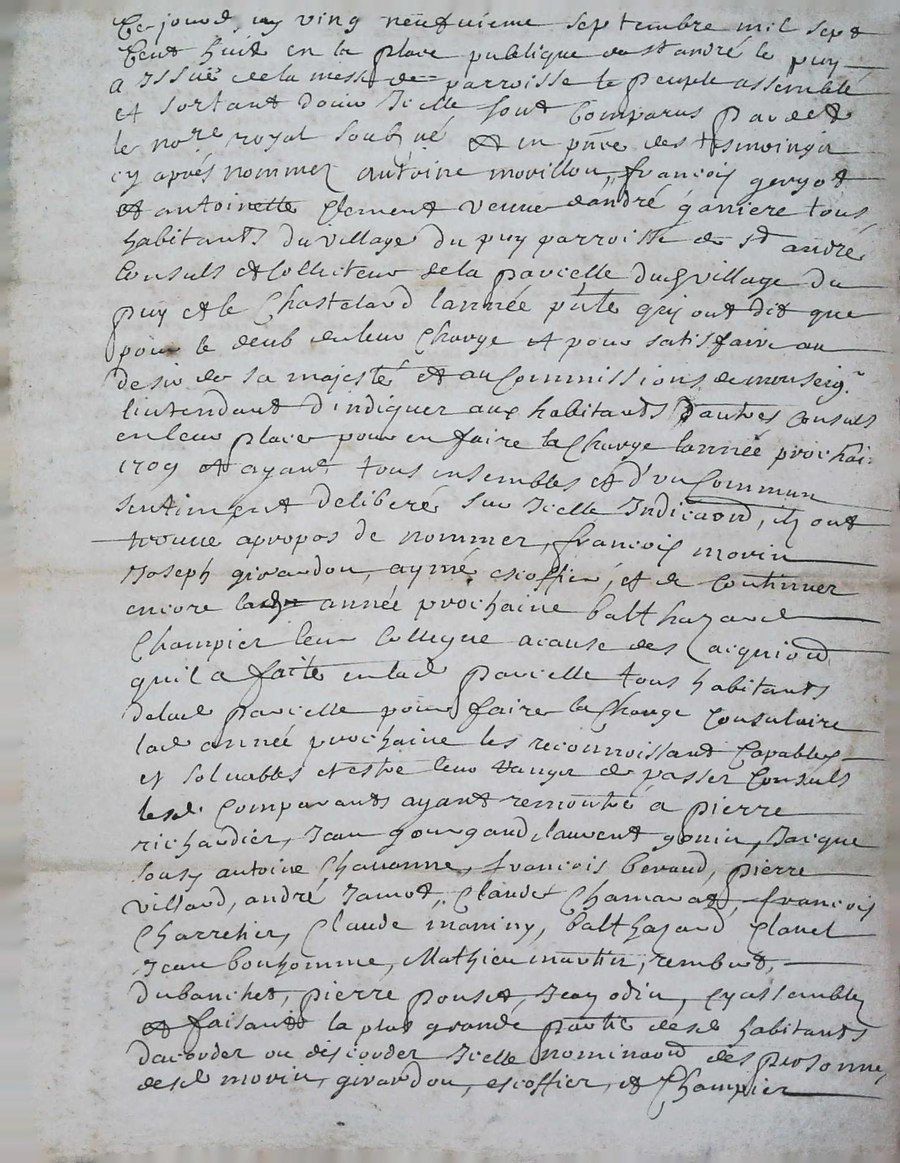 Ce jourd huy vingt neufvieme septembre mil sept
Cent huit en la place publique de st andré le puy
a Issüe de la messe de parroisse le peuple assemblé
et sortant d Icelle sont Comparus pardevt
le nore royal soubné et en pñce des tesmoingtz
cy aprés nommez antoine morillon, françois geryot
et antoinette Clement veuve dandré ganiere tous
habitants du village du puy parroisse de st andré
Consuls et Collecteur de la parcelle dud village du
puy et le Chastelard lannée pñte quy ont dit que
pour le deub de leur Charge et pour satisfaire au
desir de sa majesté et au Commissions de monseigr
lintendant d'indiquer aux habitants d'autres Consuls
en leur place pour en faire la Charge lannée prochai
1709 et ayant tous ensembles et d'un Commun
sentiment deliberé sur Icelle Indicaon, ilz ont
trouvé apropos de nommer, françois morin
Joseph girardon, aymé escoffier, et de Continuer
encore lad année prochaine balthazard
Champier leur Collegue acause de
quil a faite en lad parcelle tous habitants
de lad parcelle pour faire la Charge Consulaire
lad année prochaine les reconnoissant Capables
et solvables et estre leur ranger de passer Consuls
lesd. Comparants ayant remontré a pierre
richardier, Jean gourgaud laurent gonin, Jacque
antoine Chavanne, françois beraud, pierre
villard, andré Jamot, Claude Chamarat, françois
Charretier, Claude maniny, balthazard Clavel
Jean bonhomme, Mathieu martin, rembert,
dubanchet, pierre ponset, Jean odin, cy assemblez
et faisants la plus grande partie desd habitants
dacorder ou discorder Icelle nominaon des personnes
desd morin, girardon, escoffier, et Champier